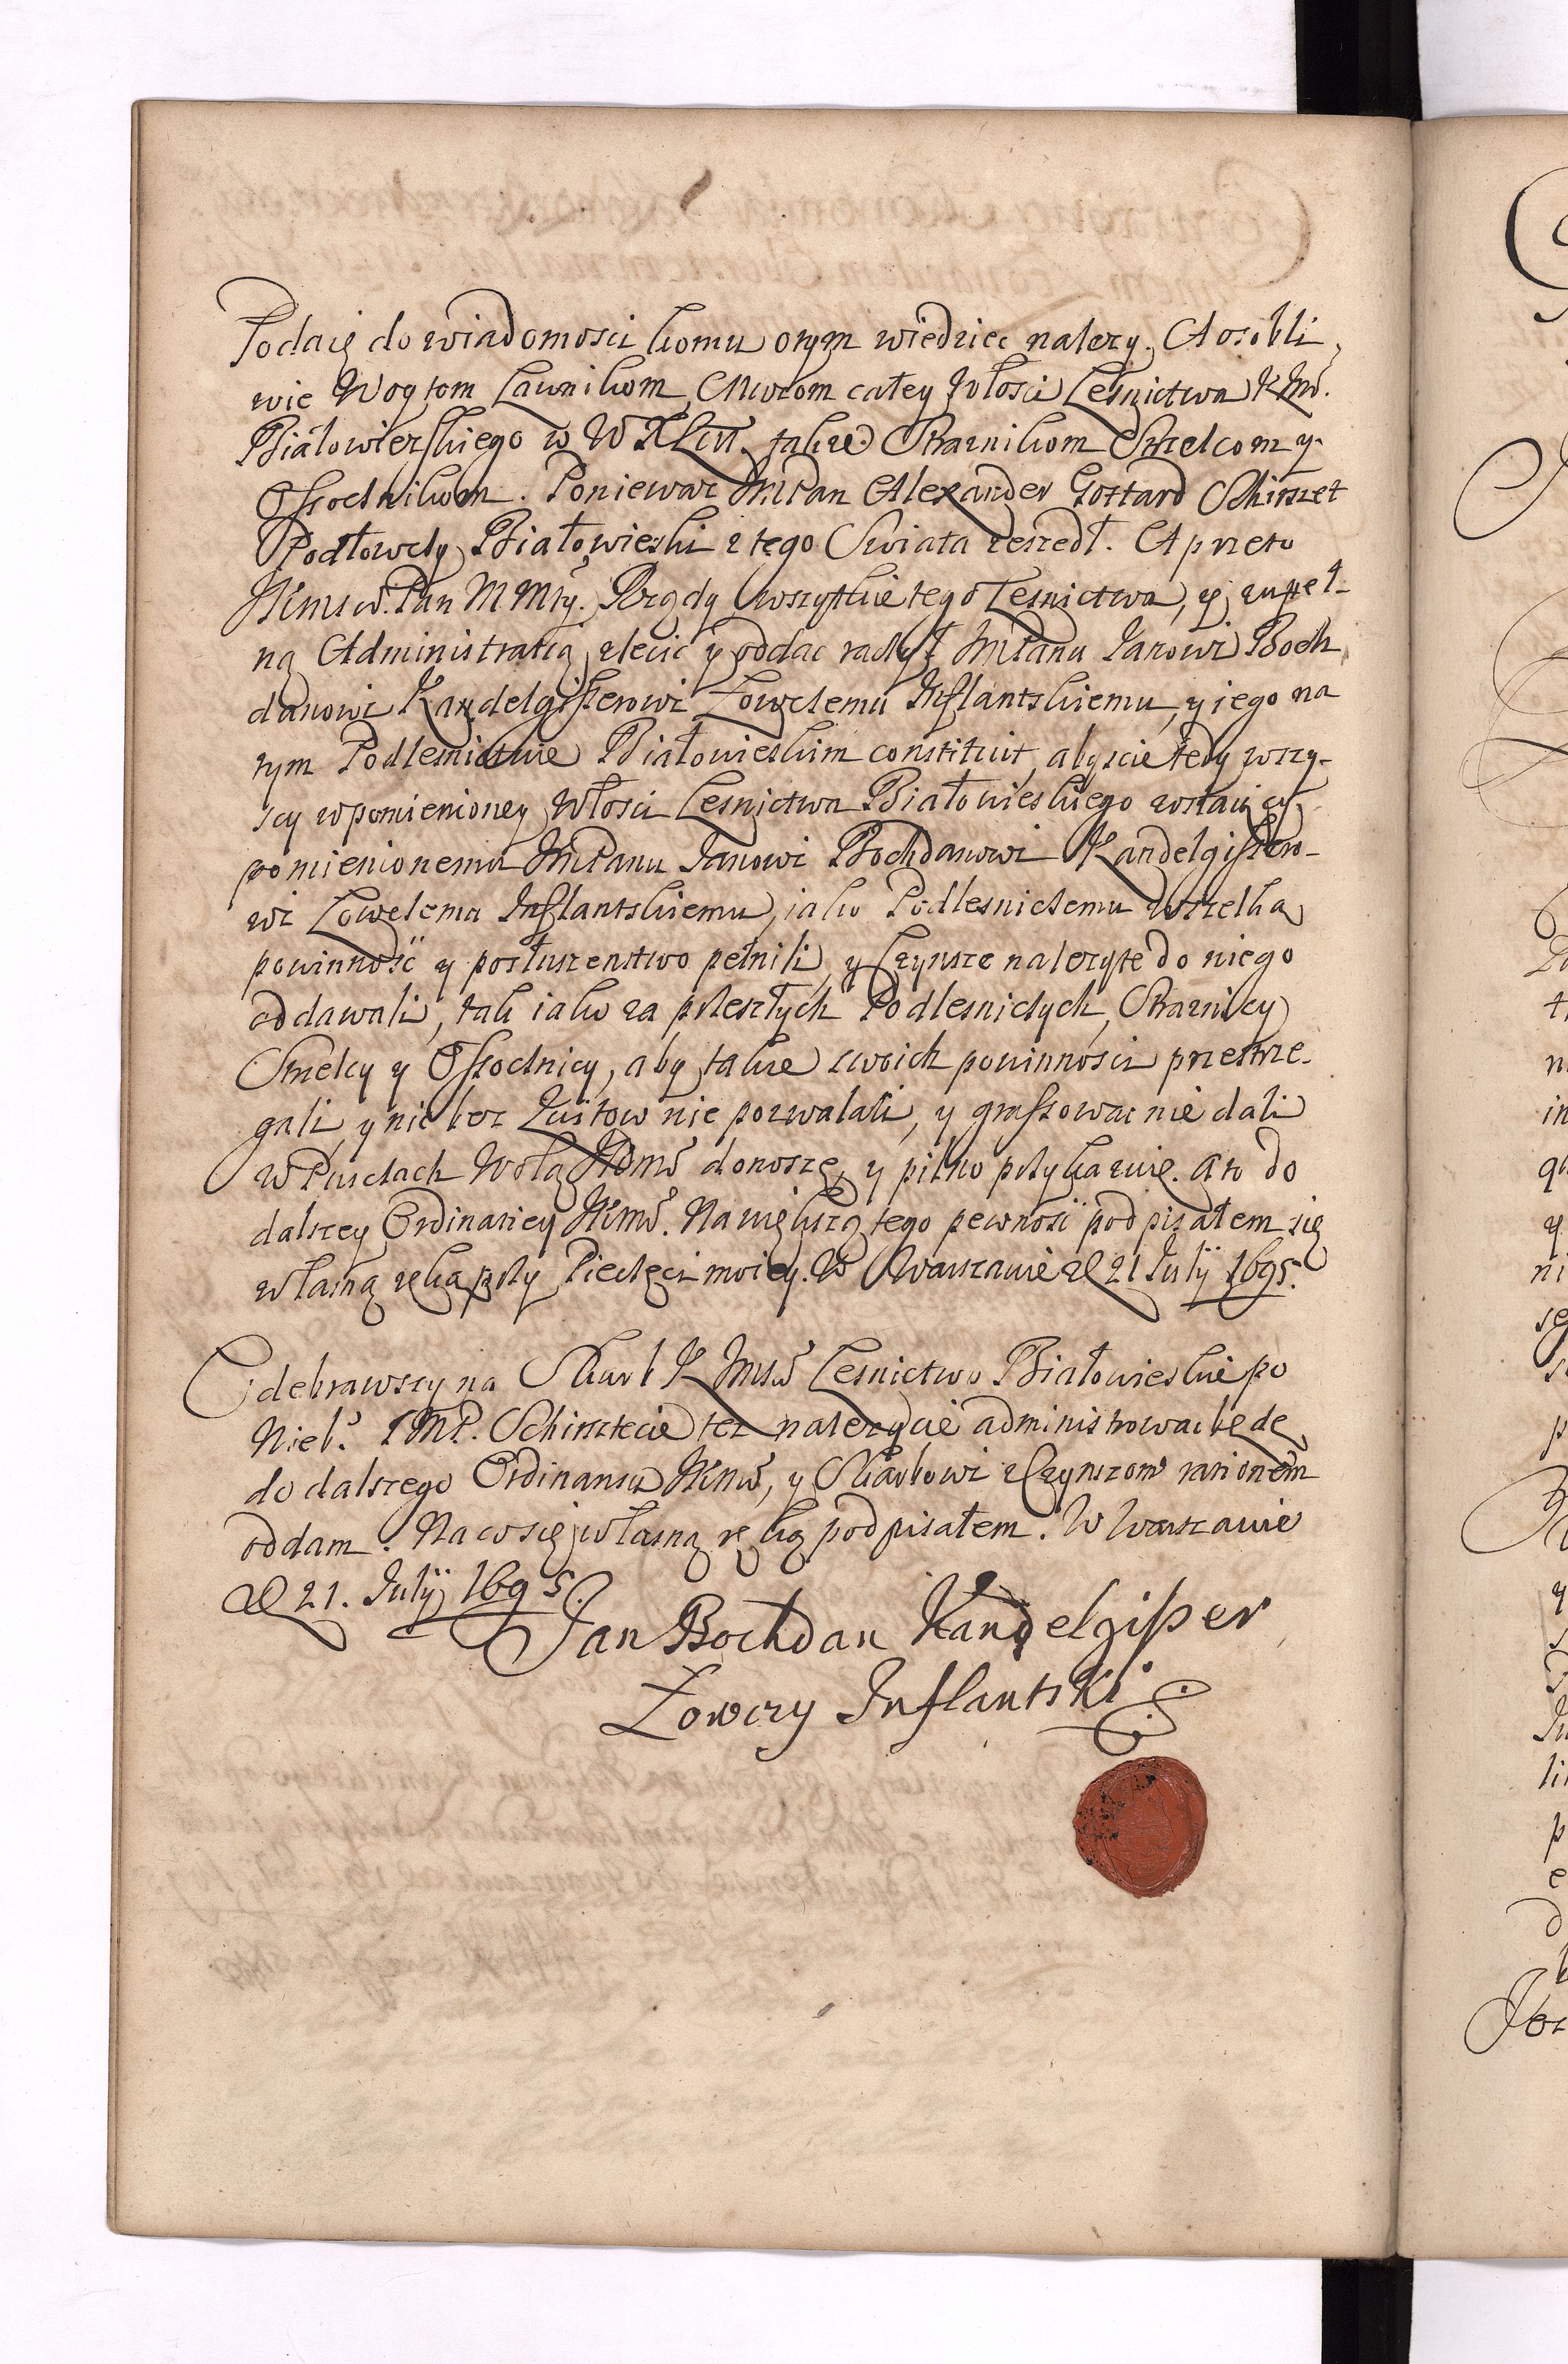 Podaię do wiadomosci komu o tym wiedziec nalezy. A osobli,
wie Woytom Ławnikom, Murom całey Włosci Lesnictwa JKMś.
Białowierskiego w WXLitt. także Straznikom Strzelcom y
Ossocznikom. Poniewaz JmPan Alexander Gottard Schirszet
Podłowczy Białowieski z tego Swiata zeszedł. A przeto
JKMsć. Pan M Mły. Rządy wszystkie tego Lesnictwa, y zupeł-
ną Administratią zlecic y oddac raczył JmPanu Janowi Boch,
danowi Kandelgisserowi Łowczemu Inflantskiemu, y iego na
tym Podlesnictwie Białowieskim constituit, abyscie tedy wszy-
scy w pomienioney Włosci Lesnictwa Białowieskiego zostaiący
pomienionemu JmPanu Janowi Bochdanowi Kandelgissero-
wi Łowczemu Inflantskiemu, iako Podlesniczemu wszelką
powinnosć y posłuszenstwo pełnili, y Czynsze nalezyte do niego
oddawali, tak iako za przeszłych Podlesniczych, Straznicy
Strzelcy y Ossocznicy, aby także swoich powinnosci przestrze-
gali, y nic bez Kwitow nie pozwalali, y grassowac nie dali
w Pusczach Wolą JKMś donoszę, y pilno przykazuię. a to do
dalszey Ordinatiey JKMś. Na większą tego pewnosć podpisałem się
własną ręką przy Pieczęci moiey. W Warszawie d 21 Julÿ 1695.
Odebrawszy na Skarb JKMsći Lesnictwo Białowieskie po
Nieb. JMP. Schirsztecie tez nalezycie administrowac będę
do dalszego Ordinansu JKMś, y Skarbowi z Czynszow rationem
oddam. Na co się własną ręką podpisałem. W Warszawie
d 21. Julÿ 1695.
Jan Bochdan Kandelgisser
Łowczy Inflantski